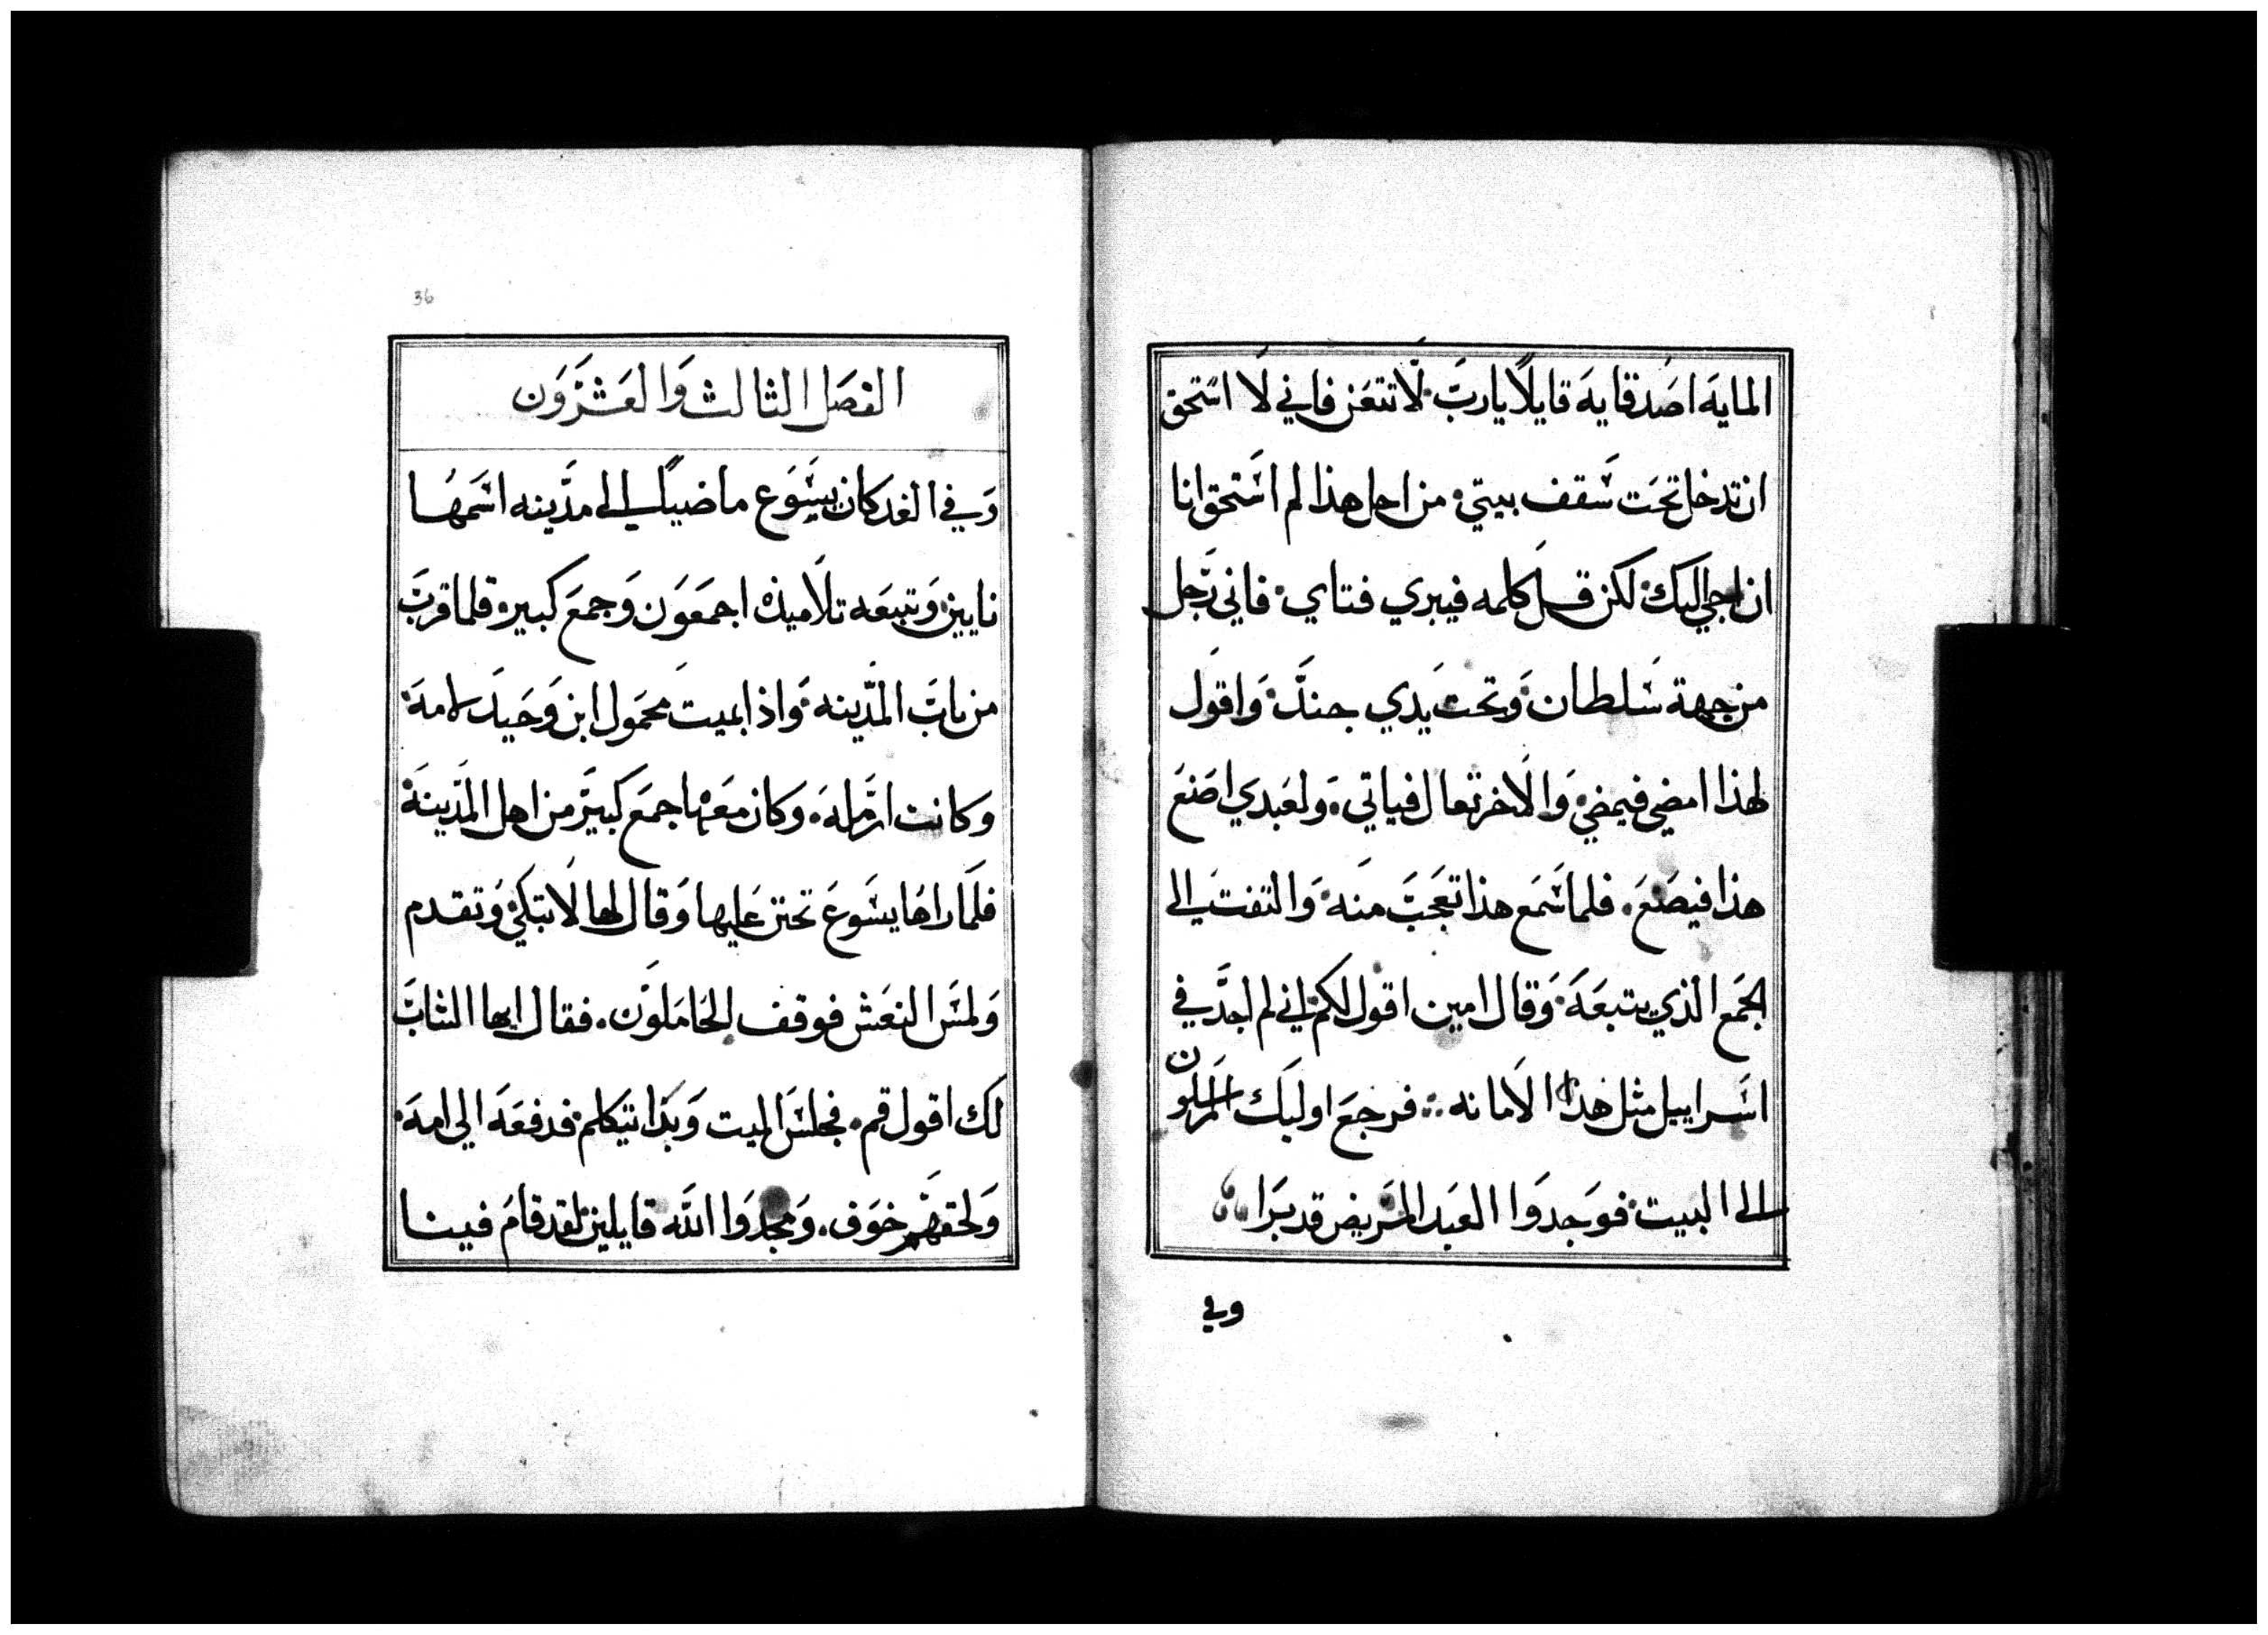 المايه اصدقايه قايلا يارب لا تتعن فاني لا استحق
ان تدخل تحت سقف بيتي من اجل هذا لم استحق انا
ان اجي اليك لكن قل كلمه فيبري فتاي فاني رجل
من جهة سلطان وتحت يدي جند واقول
لهذا امضي فيمضي والاخر تعال فياتي ولعبدي اصنع
هذا فيصنع فلما سمع هذا تعجب منه والتفت الى
الجمع الذي يتبعه وقال امين اقول لكم اني لم اجد في
اسراييل مثل هذا الامانه فرجع اوليك المرسلون
الى البيت فوجدوا العبد المريض قد برا
وفي
36
الفصل الثالث والعشرون
وفي الغد كان يسوع ماضيا الى مدينه اسمها
نايين وتبعه تلاميذه اجمعون وجمع كبير فلما قرب
من باب المدينه واذا بميت محمول ابن وحيد لامه
وكانت ارمله وكان معها جمع كبير من اهل المدينة
فلما راها يسوع تحنن عليها وقال لها لا تبكي وتقدم
ولمس النعش فوقف الحاملون فقال ايها الشاب
لك اقول قم فجلس الميت وبدا يتكلم فدفعه الى امه
ولحقهم خوف ومجدوا الله قايلين لقد قام فينا